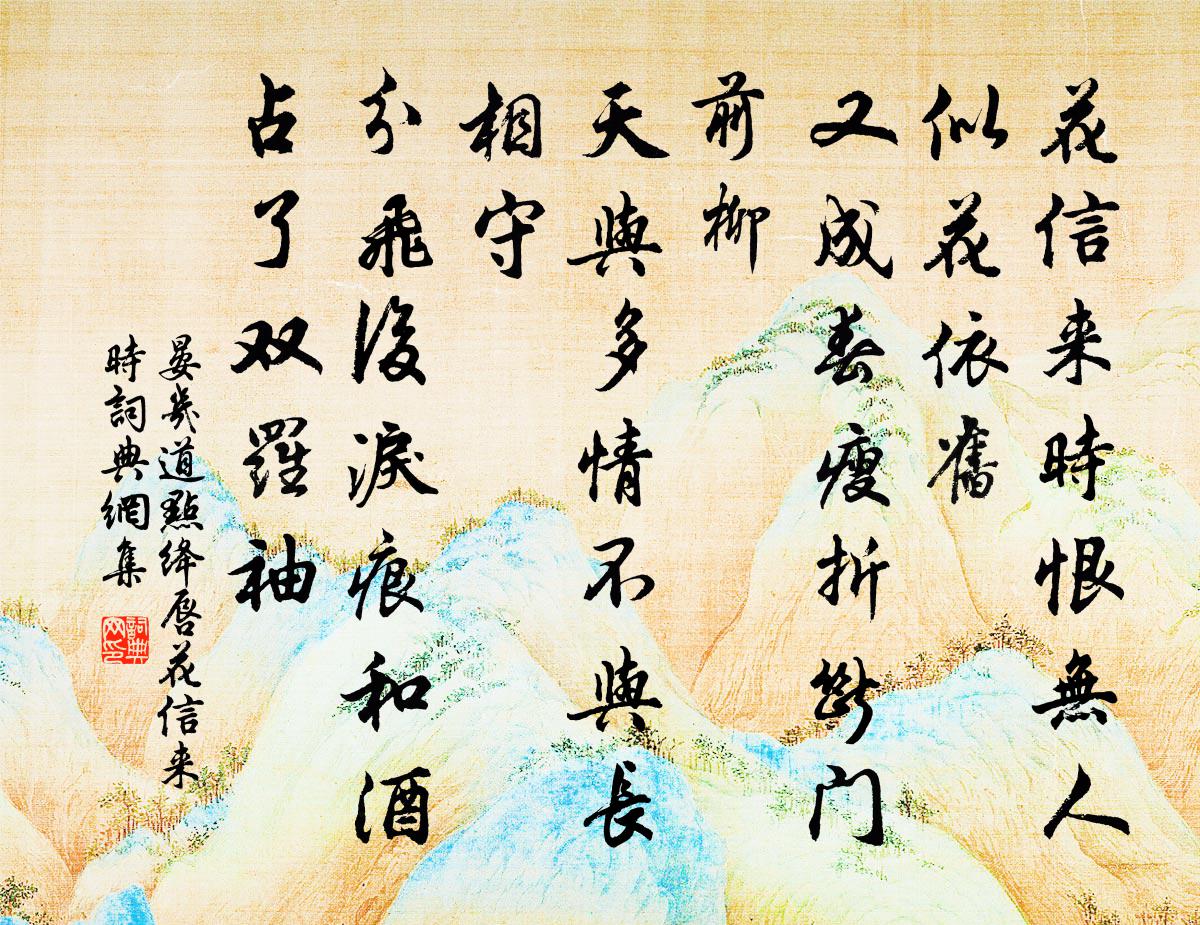 花信来時恨無人
似花依舊
又成春瘦折斷门
前柳
天與多情不與長
相守
分飛後淚痕和酒
占了双羅袖
晏幾道點绛唇花信来
時詞典網集
詞典
网印